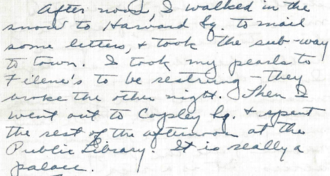 After noon, I walked in the
snow to Harvard Sq. to mail
some letters, & took the sub-way
to town. I took my pearls to
Filene's to be restrung – they
broke the other night. Then I
went out to Copley Sq. & spent
the rest of the afternoon at the
Public Library. It is really a
palace.